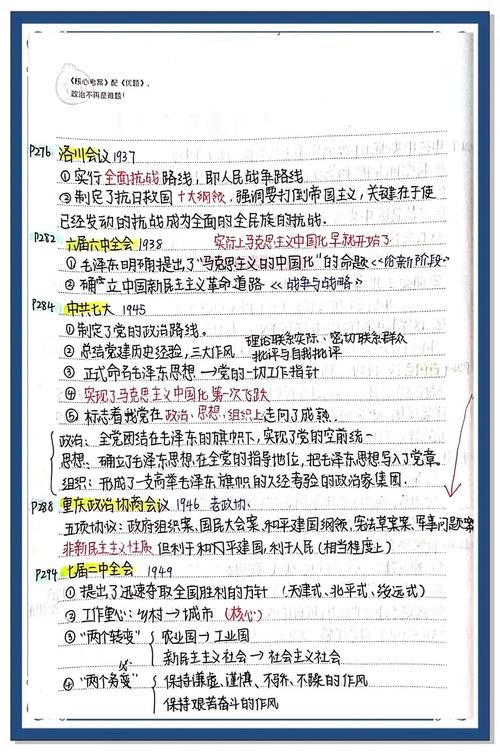 《核心考案》配《优题》，
政治不再是难题！
P276 洛川会议 1937
① 实行全面抗战路线，即人民战争路线
② 制定了抗日救国十大纲领，强调要打倒帝国主义，关键在于使
已经发动的抗战成为全面的全民族的抗战.
P282 六届六中全会 1938 实际上马克思主义中国化早就开始了
① 毛泽东明确提出了“马克思主义的中国化”的命题《论新阶段》
② 确立中国新民主主义革命道路《战争与战略》
P284 中共七大 1945
① 制定了党的政治路线。
② 总结党建历史经验，三大作风 理论联系实际、密切联系群众
批评与自我批评
③ 正式命名毛泽东思想→党的一切工作指针
④ 实现了马克思主义中国化第一次飞跃
⑤ 标志着我党在政治、思想、组织上走向了成熟.
政治：全党团结在毛泽东的旗帜下，实现了党的空前统一
思想：确立了毛泽东思想在全党的指导地位，把毛泽东思想写入了党章.
组织：形成了一支高举毛泽东旗帜的久经考验的政治家集团.
P288 重庆政治协商会议 1946 老政协.
五项协议：政府组织案、国民大会案、和平建国纲领，宪法草案案，军事问题案
非新民主主义性质 但利于和平建国，利于人民（相当程度上）
P294 七届二中全会 1949
① 提出了迅速夺取全国胜利的方针（天津式、北平式、绥远式）
② 工作重心：乡村→城市（核心）
③ “两个转变” 农业国→工业国
新民主主义社会→社会主义社会
务
④ “两个务变” 保持谦虚、谨慎、不骄、不躁的作风
保持艰苦奋斗的作风